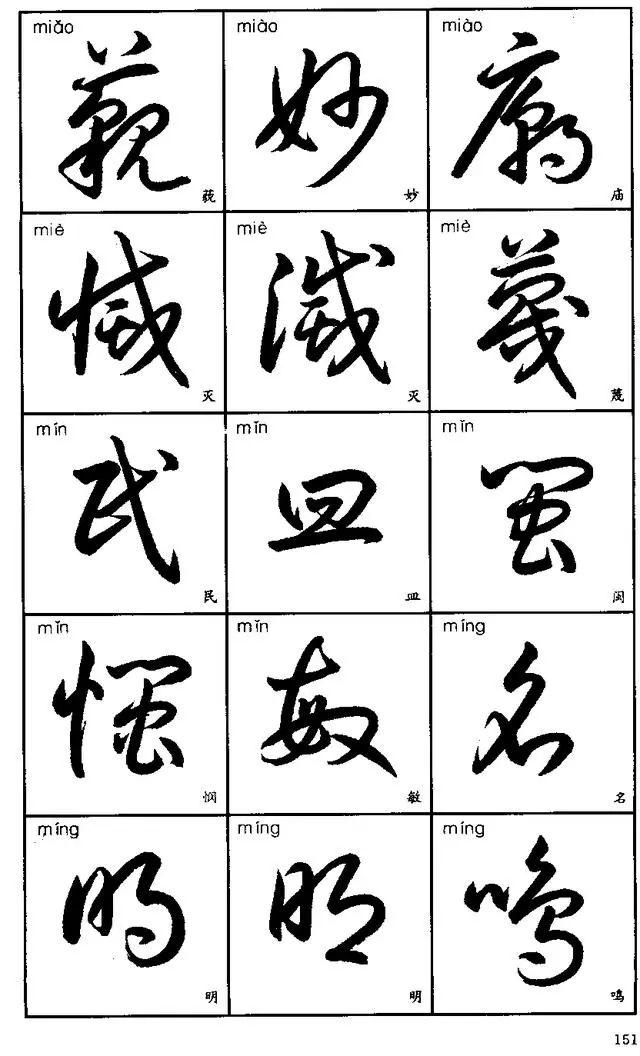 miǎo miào miào
藐 妙 廟
藐 妙 庙
miè miè miè
滅 滅 蔑
灭 灭 蔑
mín mǐn mǐn
民 皿 閩
民 皿 闽
mǐn mǐn míng
憫 敏 名
悯 敏 名
míng míng míng
明 明 鳴
明 明 鸣
151